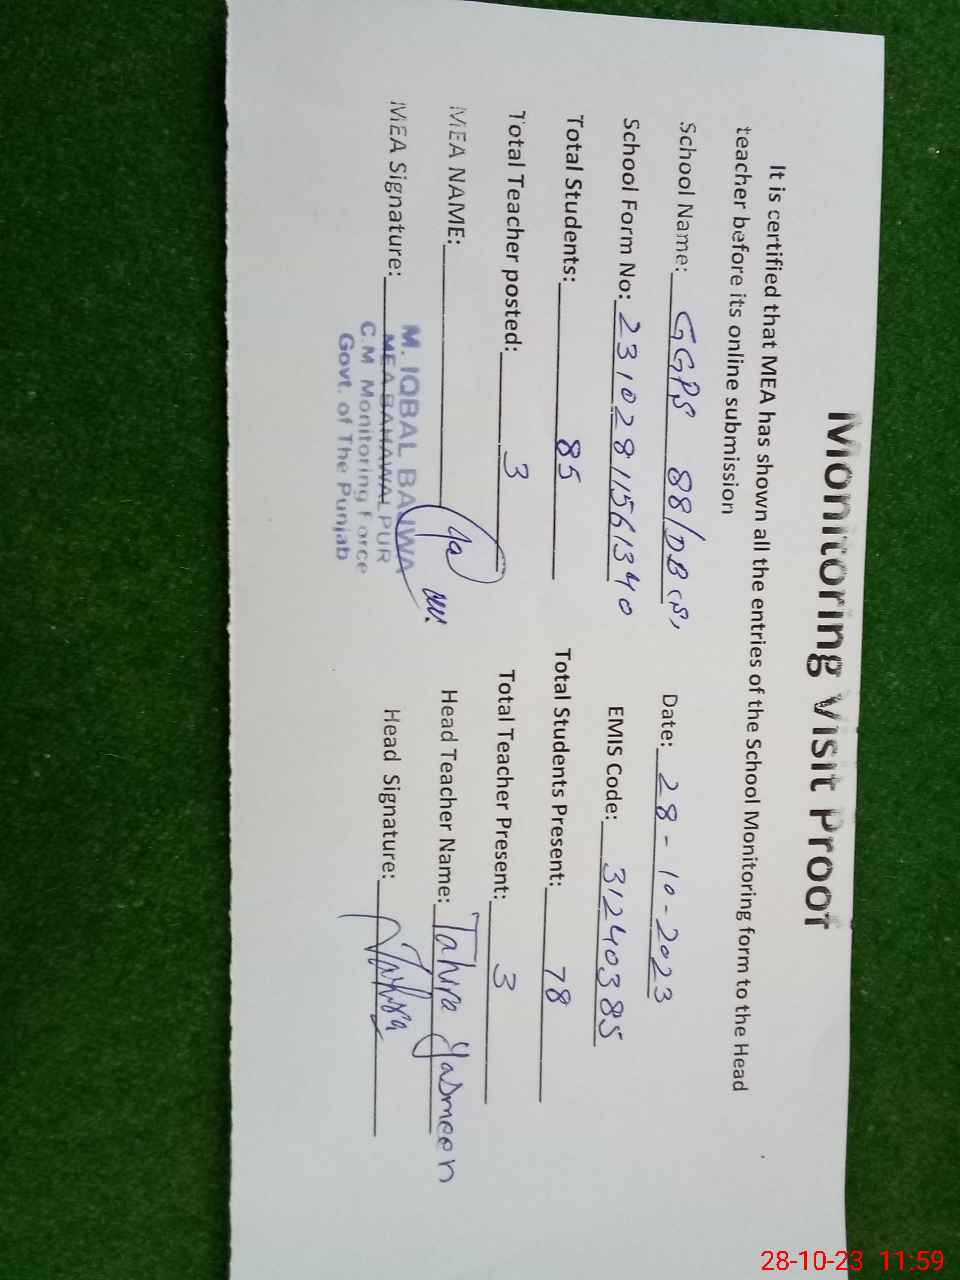 Monitoring Visit Proof
It is certified that MEA has shown all the entries of the School Monitoring form to the Head
teacher before its online submission
School Name: GGPS 88/DB Date: 28-10-2023
School Form No: 23102811561340 EMIS Code: 31240385
Total Students: 85 Total Students Present: 78
Total Teacher posted: 3 Total Teacher Present: 3
MEA NAME: Head Teacher Name: Tahira Yasmeen
MEA Signature: Head Signature: Tahira
M. IQBAL BAJWA
MEA BAHAWALPUR
C.M Monitoring Force
Govt. of The Punjab
28-10-23 11:59